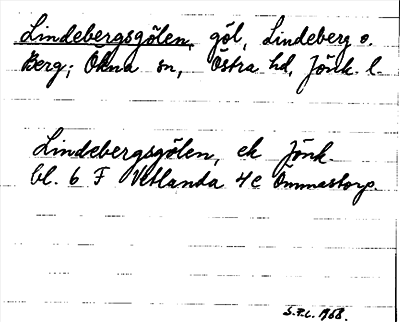 Lindebergsgölen, göl, Lindeberg o.
Berg; Ökna sn, Östra hd, Jönk. l.
Lindebergsgölen, ek Jönk.
bl. 6 F Vetlanda 4c Ommastorp.
S.F.L. 1968.